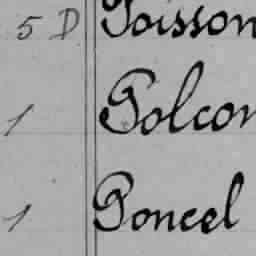 5 D Poisson
1 Polcon
1 Poncel